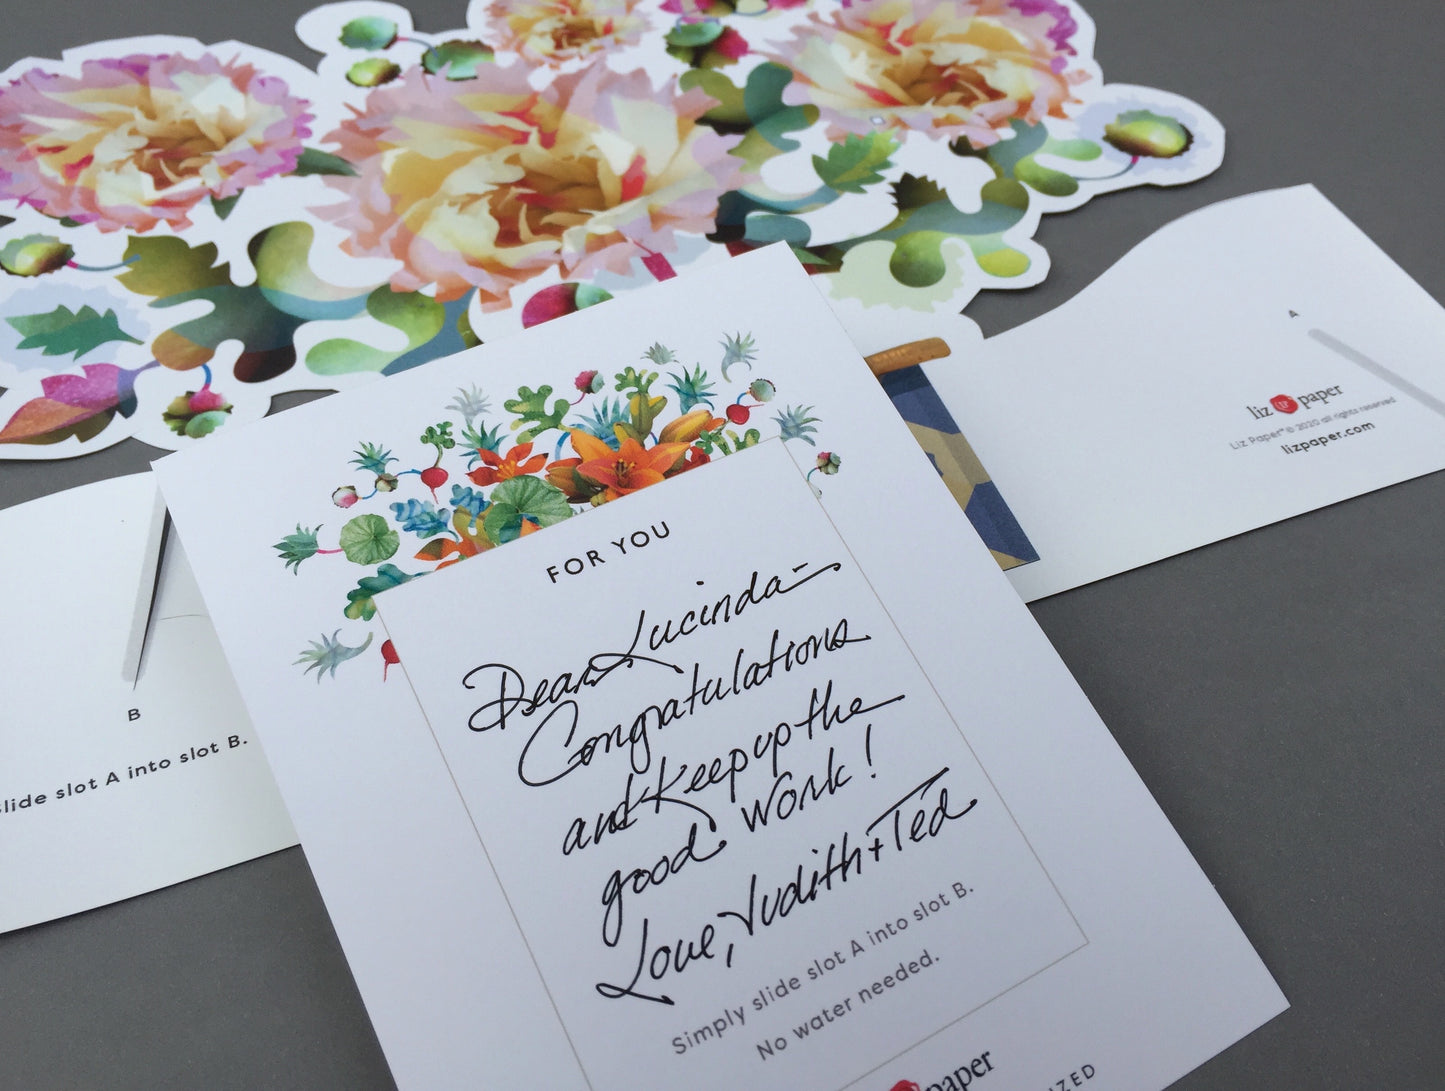 FOR YOU
Dear Lucinda -
Congratulations
and keep up the
good work!
Love, Judith + Ted
Simply slide slot A into slot B.
No water needed.
paper
B
slide slot A into slot B.
A
liz LP paper
Liz Paper © 2020 all rights reserved
lizpaper.com